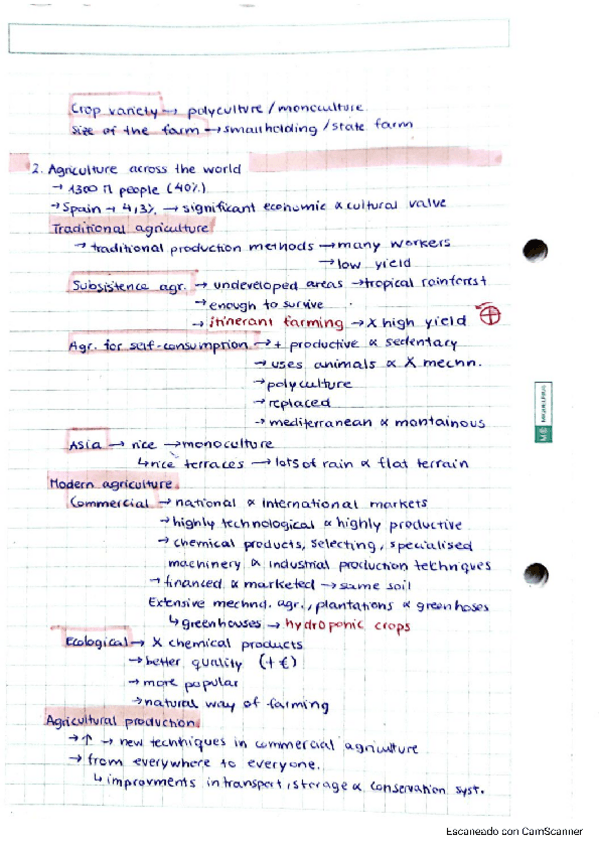 Crop variety → polyculture / monoculture
Size of the farm → smallholding / state farm
2. Agriculture across the world
→ 1300 M people (40%)
→ Spain → 4,3% → significant economic & cultural value
Traditional agriculture
→ traditional production methods → many workers
→ low yield
Subsistence agr. → undeveloped areas → tropical rainforest
→ enough to survive
→ itinerant farming → X high yield ⊕
Agr. for self-consumption → + productive & sedentary
→ uses animals & X mechn.
→ polyculture
→ replaced
→ mediterranean & montainous
Asia → rice → monoculture
↳ rice terraces → lots of rain & flat terrain
Modern agriculture
Commercial → national & international markets
→ highly technological & highly productive
→ chemical products, selecting, specialised
machinery & industrial production techniques
→ financed & marketed → same soil
Extensive mechnd. agr., plantations & greenhoses
↳ greenhouses → hydroponic crops
Ecological → X chemical products
→ better quality (+€)
→ more popular
→ natural way of farming
Agricultural production
→ ↑ → new techniques in commercial agriculture
→ from everywhere to everyone.
↳ improvments in transport, storage & conservation syst.
Escaneado con CamScanner